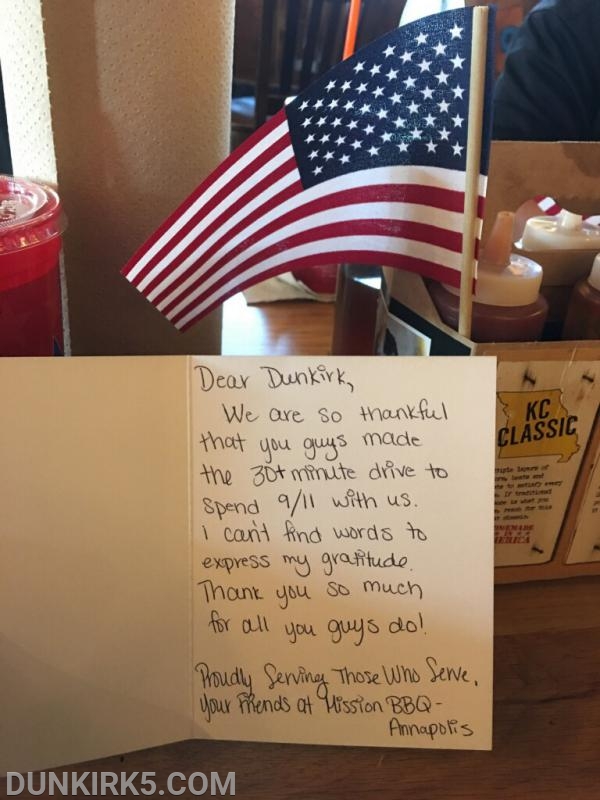 Dear Dunkirk,
We are so thankful
that you guys made
the 30+ minute drive to
spend 9/11 with us.
i can't find words to
express my gratitude.
Thank you so much
for all you guys do!
Proudly Serving Those Who Serve,
Your Friends at Mission BBQ-
Annapolis
KC
CLASSIC
HOMEMADE
IN
AMERICA
DUNKIRK5.COM